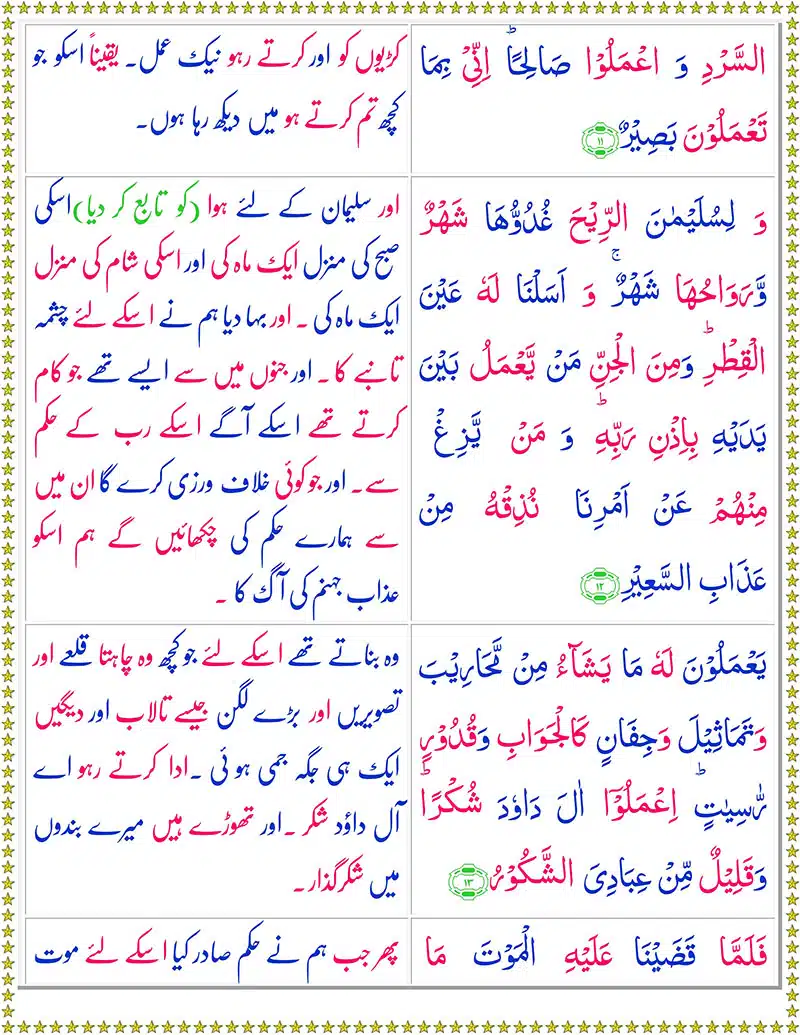 السَّرْدِ وَ اعْمَلُوْا صَالِحًا ؕ اِنِّىْ بِمَا
تَعْمَلُوْنَ بَصِيْرٌ ﴿۱۱﴾
کڑیوں کو اور کرتے رہو نیک عمل۔ یقیناً اسکو جو
کچھ تم کرتے ہو میں دیکھ رہا ہوں۔
وَ لِسُلَيْمٰنَ الرِّيْحَ غُدُوُّهَا شَهْرٌ
وَّرَوَاحُهَا شَهْرٌ ۚ وَ اَسَلْنَا لَهٗ عَيْنَ
الْقِطْرِ ؕ وَمِنَ الْجِنِّ مَنْ يَّعْمَلُ بَيْنَ
يَدَيْهِ بِاِذْنِ رَبِّهٖ ؕ وَ مَنْ يَّزِغْ
مِنْهُمْ عَنْ اَمْرِنَا نُذِقْهُ مِنْ
عَذَابِ السَّعِيْرِ ﴿۱۲﴾
اور سلیمان کے لئے ہوا (کو تابع کر دیا) اسکی
صبح کی منزل ایک ماہ کی اور اسکی شام کی منزل
ایک ماہ کی ۔ اور بہا دیا ہم نے اسکے لئے چشمہ
تانبے کا ۔ اور جنوں میں سے ایسے تھے جو کام
کرتے تھے اسکے آگے اسکے رب کے حکم
سے۔ اور جو کوئی خلاف ورزی کرے گا ان میں
سے ہمارے حکم کی چکھائیں گے ہم اسکو
عذاب جہنم کی آگ کا ۔
يَعْمَلُوْنَ لَهٗ مَا يَشَآءُ مِنْ مَّحَارِيْبَ
وَتَمَاثِيْلَ وَجِفَانٍ كَالْجَوَابِ وَقُدُوْرٍ
رّٰسِيٰتٍ ؕ اِعْمَلُوْۤا اٰلَ دَاوٗدَ شُكْرًا ؕ
وَقَلِيْلٌ مِّنْ عِبَادِىَ الشَّكُوْرُ ﴿۱۳﴾
وہ بناتے تھے اسکے لئے جو کچھ وہ چاہتا قلعے اور
تصویریں اور بڑے لگن جیسے تالاب اور دیگیں
ایک ہی جگہ جمی ہوئی ۔ ادا کرتے رہو اے
آل داؤد شکر ۔ اور تھوڑے ہیں میرے بندوں
میں شکرگذار ۔
فَلَمَّا قَضَيْنَا عَلَيْهِ الْمَوْتَ مَا
پھر جب ہم نے حکم صادر کیا اسکے لئے موت